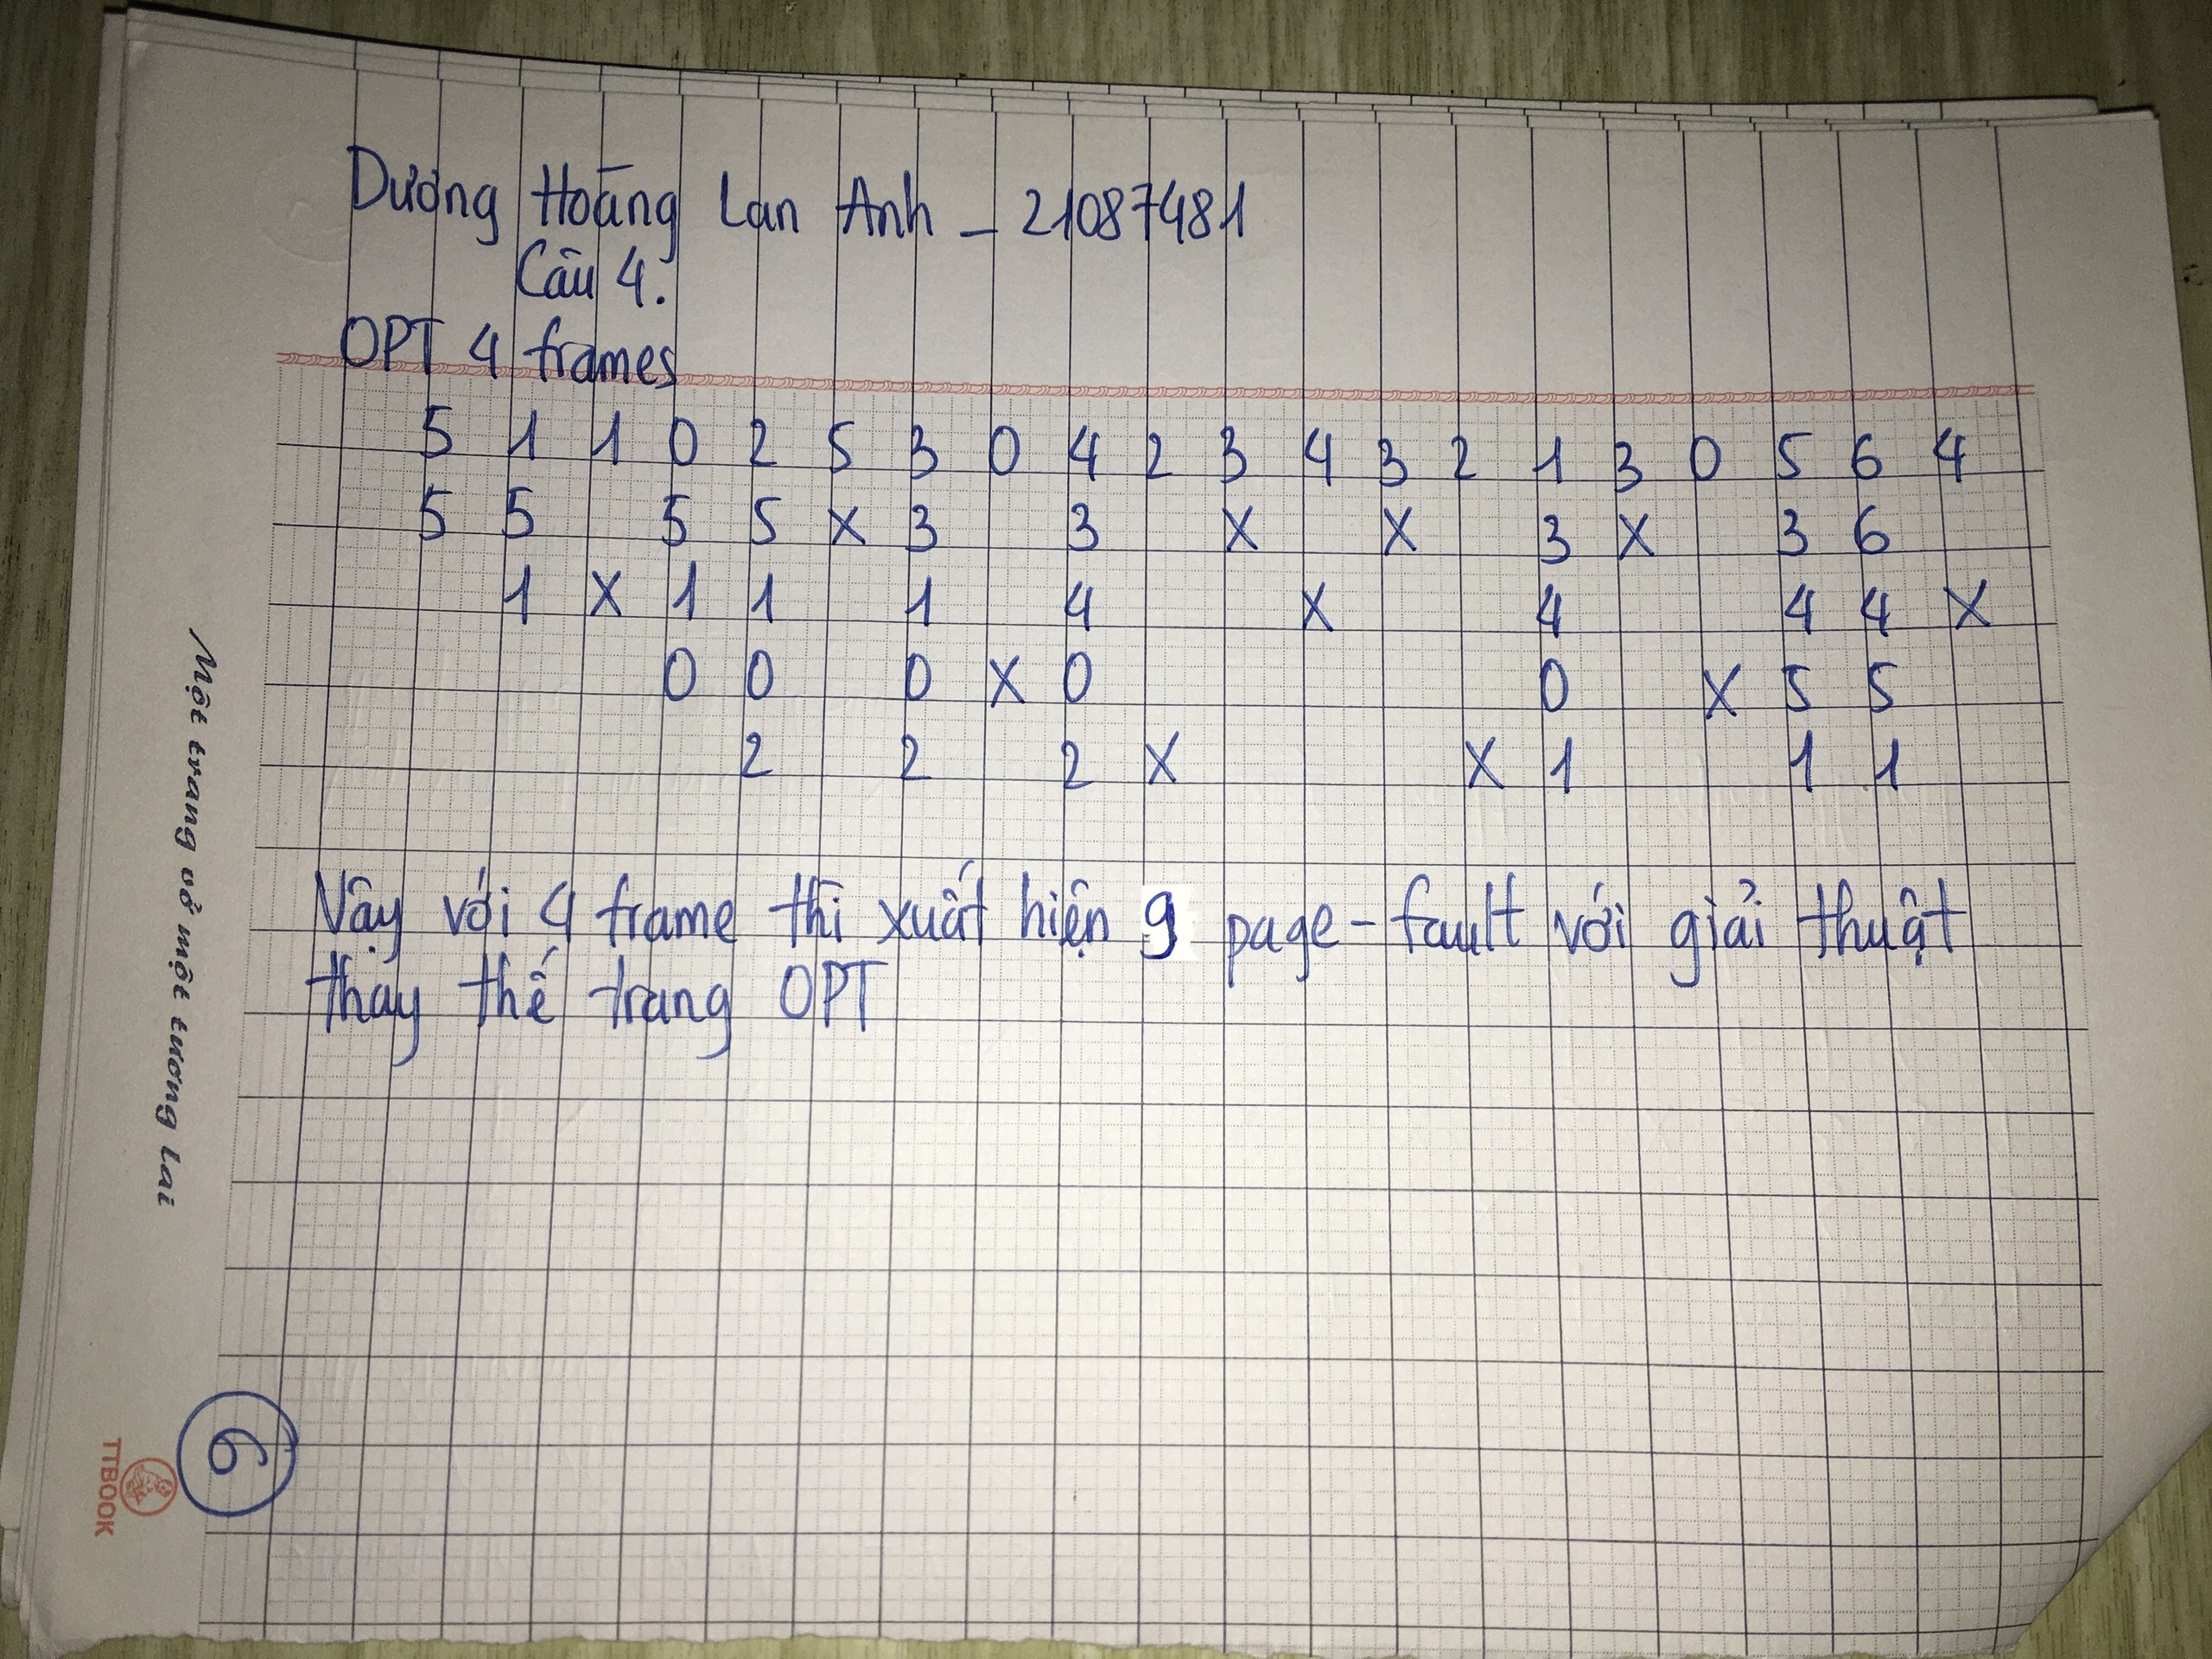 Dương Hoàng Lan Anh - 21087481
Câu 4.
OPT 4 frames
5 1 1 0 2 5 3 0 4 2 3 4 3 2 1 3 0 5 6 4
5 5 5 5 X 3 3 X X 3 X 3 6
1 X 1 1 1 4 X 4 4 4 X
0 0 0 X 0 0 X 5 5
2 2 2 X X 1 1 1
Vậy với 4 frame thì xuất hiện 9 page-fault với giải thuật
thay thế trang OPT
Một trang vở một tương lai
6
TTBOOK